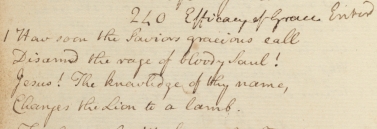 240 Efficacy of Grace
1 How soon the Saviors gracious call
Disarmd the rage of bloody Saul!
Jesus! The knowledge of thy name,
Changes the Lion to a lamb.